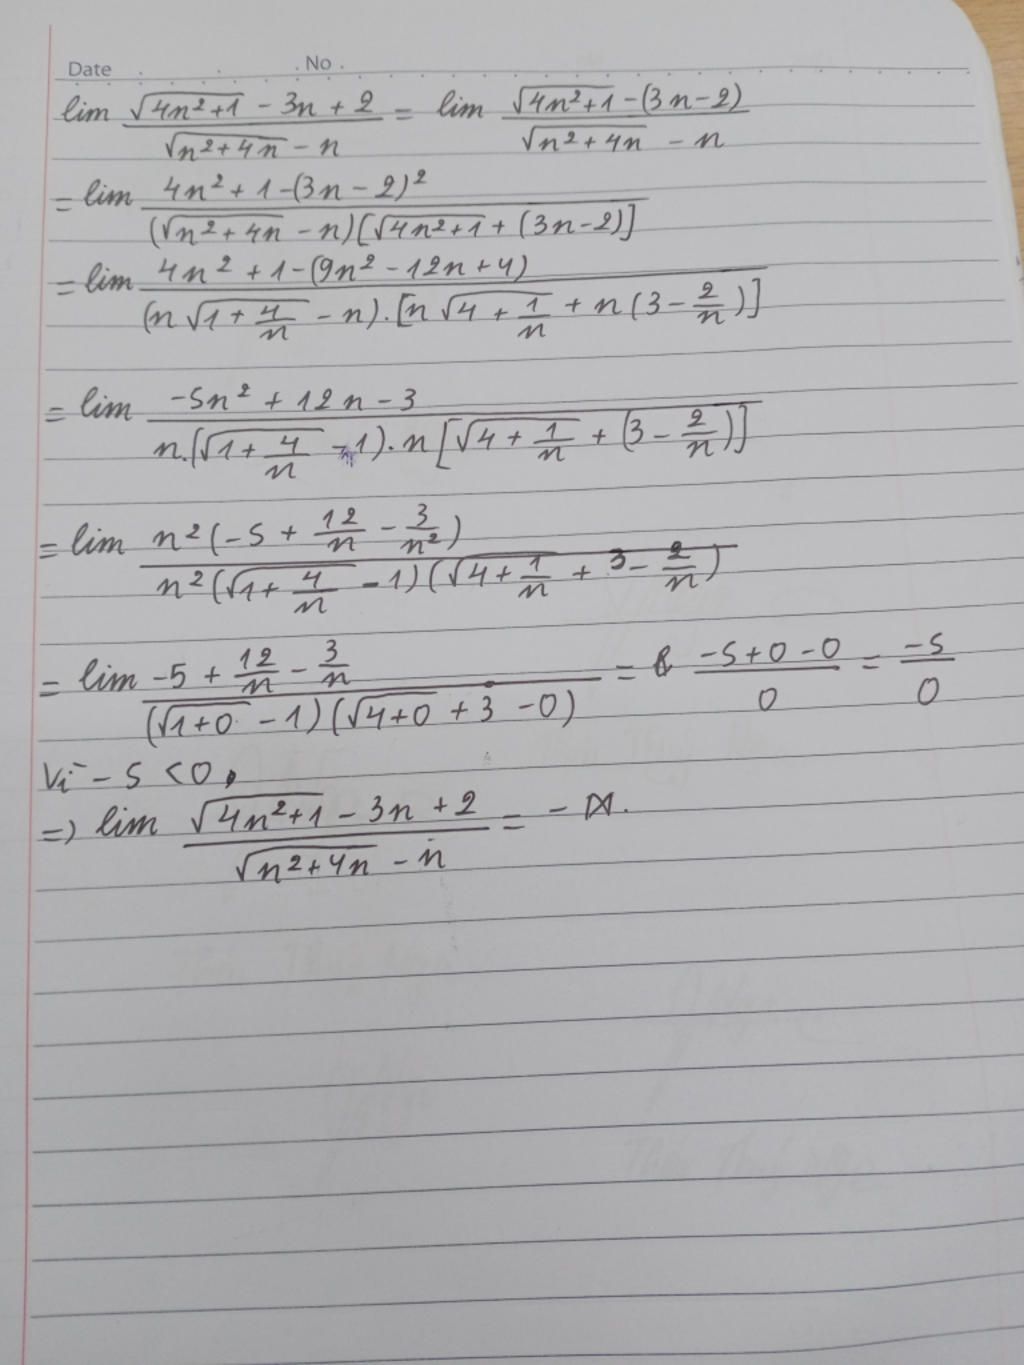 Date No.
lim (√(4n²+1) - 3n + 2)/(√(n²+4n) - n) = lim (√(4n²+1) - (3n-2))/(√(n²+4n) - n)
= lim (4n² + 1 - (3n - 2)²)/((√(n²+4n) - n)[√(4n²+1) + (3n-2)])
= lim (4n² + 1 - (9n² - 12n + 4))/((n√(1 + 4/n) - n).[n√(4 + 1/n) + n(3 - 2/n)])
= lim (-5n² + 12n - 3)/(n.(√(1 + 4/n) - 1).n[√(4 + 1/n) + (3 - 2/n)])
= lim (n²(-5 + 12/n - 3/n²))/(n²(√(1 + 4/n) - 1)(√(4 + 1/n) + 3 - 2/n))
= lim (-5 + 12/n - 3/n)/((√(1+0) - 1)(√(4+0) + 3 - 0)) = (-5+0-0)/0 = -5/0
Vì -5 < 0,
=> lim (√(4n²+1) - 3n + 2)/(√(n²+4n) - n) = -∞.